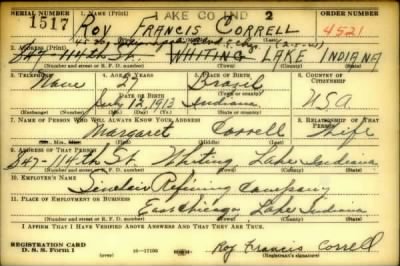 SERIAL NUMBER 1. NAME (Print) LAKE CO IND 2 ORDER NUMBER
1517 ROY FRANCIS CORRELL 4521
2. ADDRESS (Print)
847 - 114th St. WHITING LAKE INDIANA
(Number and street or R. F. D. number) (Town) (County) (State)
3. TELEPHONE 4. AGE IN YEARS 5. PLACE OF BIRTH 6. COUNTRY OF CITIZENSHIP
None 27 Brazil
DATE OF BIRTH
July 12, 1913 Indiana USA
(Exchange) (Number) (Mo.) (Day) (Yr.) (State or country)
7. NAME OF PERSON WHO WILL ALWAYS KNOW YOUR ADDRESS 8. RELATIONSHIP OF THAT PERSON
Margaret Correll Wife
9. ADDRESS OF THAT PERSON
847-114th St. Whiting Lake Indiana
(Number and street or R. F. D. number) (Town) (County) (State)
10. EMPLOYER'S NAME
Sinclair Refining Company
11. PLACE OF EMPLOYMENT OR BUSINESS
East Chicago Lake Indiana
(Number and street or R. F. D. number) (Town) (County) (State)
I AFFIRM THAT I HAVE VERIFIED ABOVE ANSWERS AND THAT THEY ARE TRUE.
REGISTRATION CARD
D. S. S. Form 1 (over) Roy Francis Correll
(Registrant's signature)